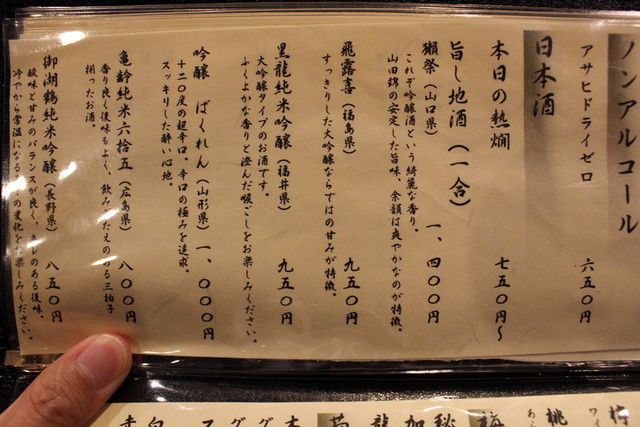 ノンアルコール
アサヒドライゼロ 六五〇円
日本酒
本日の熱燗 七五〇円〜
旨し地酒（一合）
獺祭（山口県） 一、四〇〇円
これぞ吟醸酒という綺麗な香り。
山田錦の安定した旨味、余韻は爽やかなのが特徴。
飛露喜（福島県） 九五〇円
すっきりした大吟醸ならではの甘みが特徴。
黒龍純米吟醸（福井県） 九五〇円
大吟醸タイプのお酒です。
ふくよかな香りと澄んだ喉ごしをお楽しみください。
吟醸 ばくれん（山形県） 一、〇〇〇円
＋二〇度の超辛口。辛口の極みを追求。
スッキリした酔い心地。
亀齢純米六拾五（広島県） 八〇〇円
香り良く後味もよく、飲みごたえのある三拍子
揃ったお酒。
御湖鶴純米吟醸（長野県） 八五〇円
酸味と甘みのバランスが良く、キレのある後味。
冷やから常温になる の変化をお楽しみください。